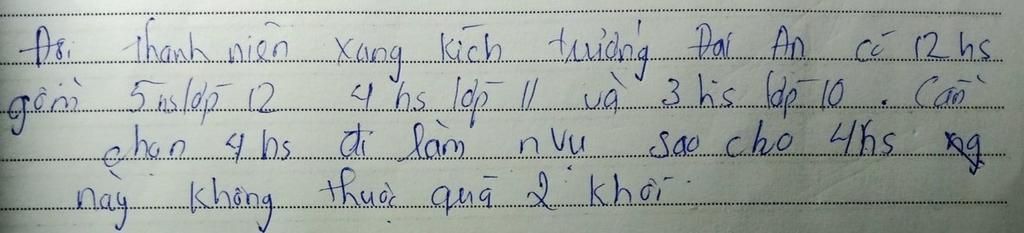 Đội thanh niên xung kích trường Đại An có 12 hs
gồm 5 hs lớp 12 4 hs lớp 11 và 3 hs lớp 10. Cần
chọn 4 hs đi làm nvụ sao cho 4hs
này không thuộc quá 2 khối